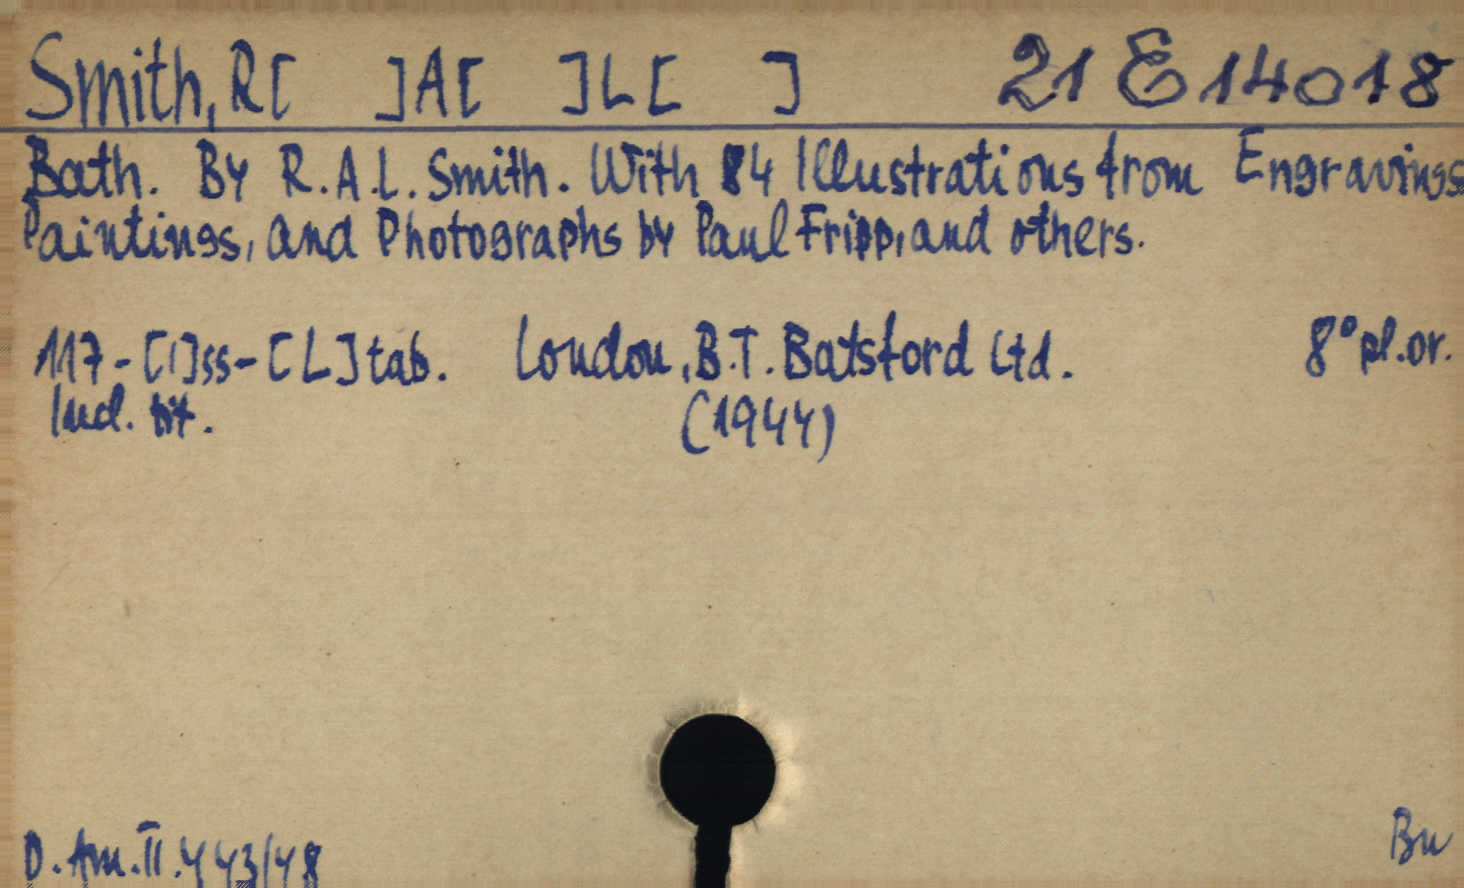 Smith, R[ ]A[ ]L[ ] 21 E 14018
Bath. By R.A.L. Smith. With 84 Illustrations from Engravings
Paintings, and Photographs by Paul Fripp, and others.
117-[1]ss-[L]tab. London, B.T. Batsford Ltd. 8° pl.or.
Ind. tit. (1944)
D. Am. II. 443/48 Bu